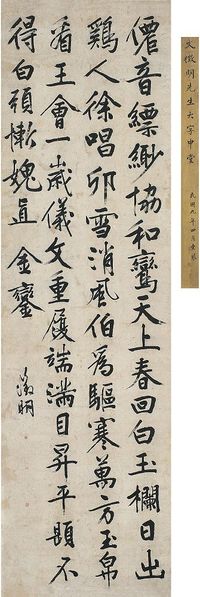 僊音縹緲協和鸞天上春回白玉欄日出
鷄人徐唱卯雪消風伯為驅寒萬方玉帛
看王會一歲儀文重履端滿目昇平題不
得白頭慚媿直金鑾
徵明
文徵明先生大字中堂
民國九年四月重裝